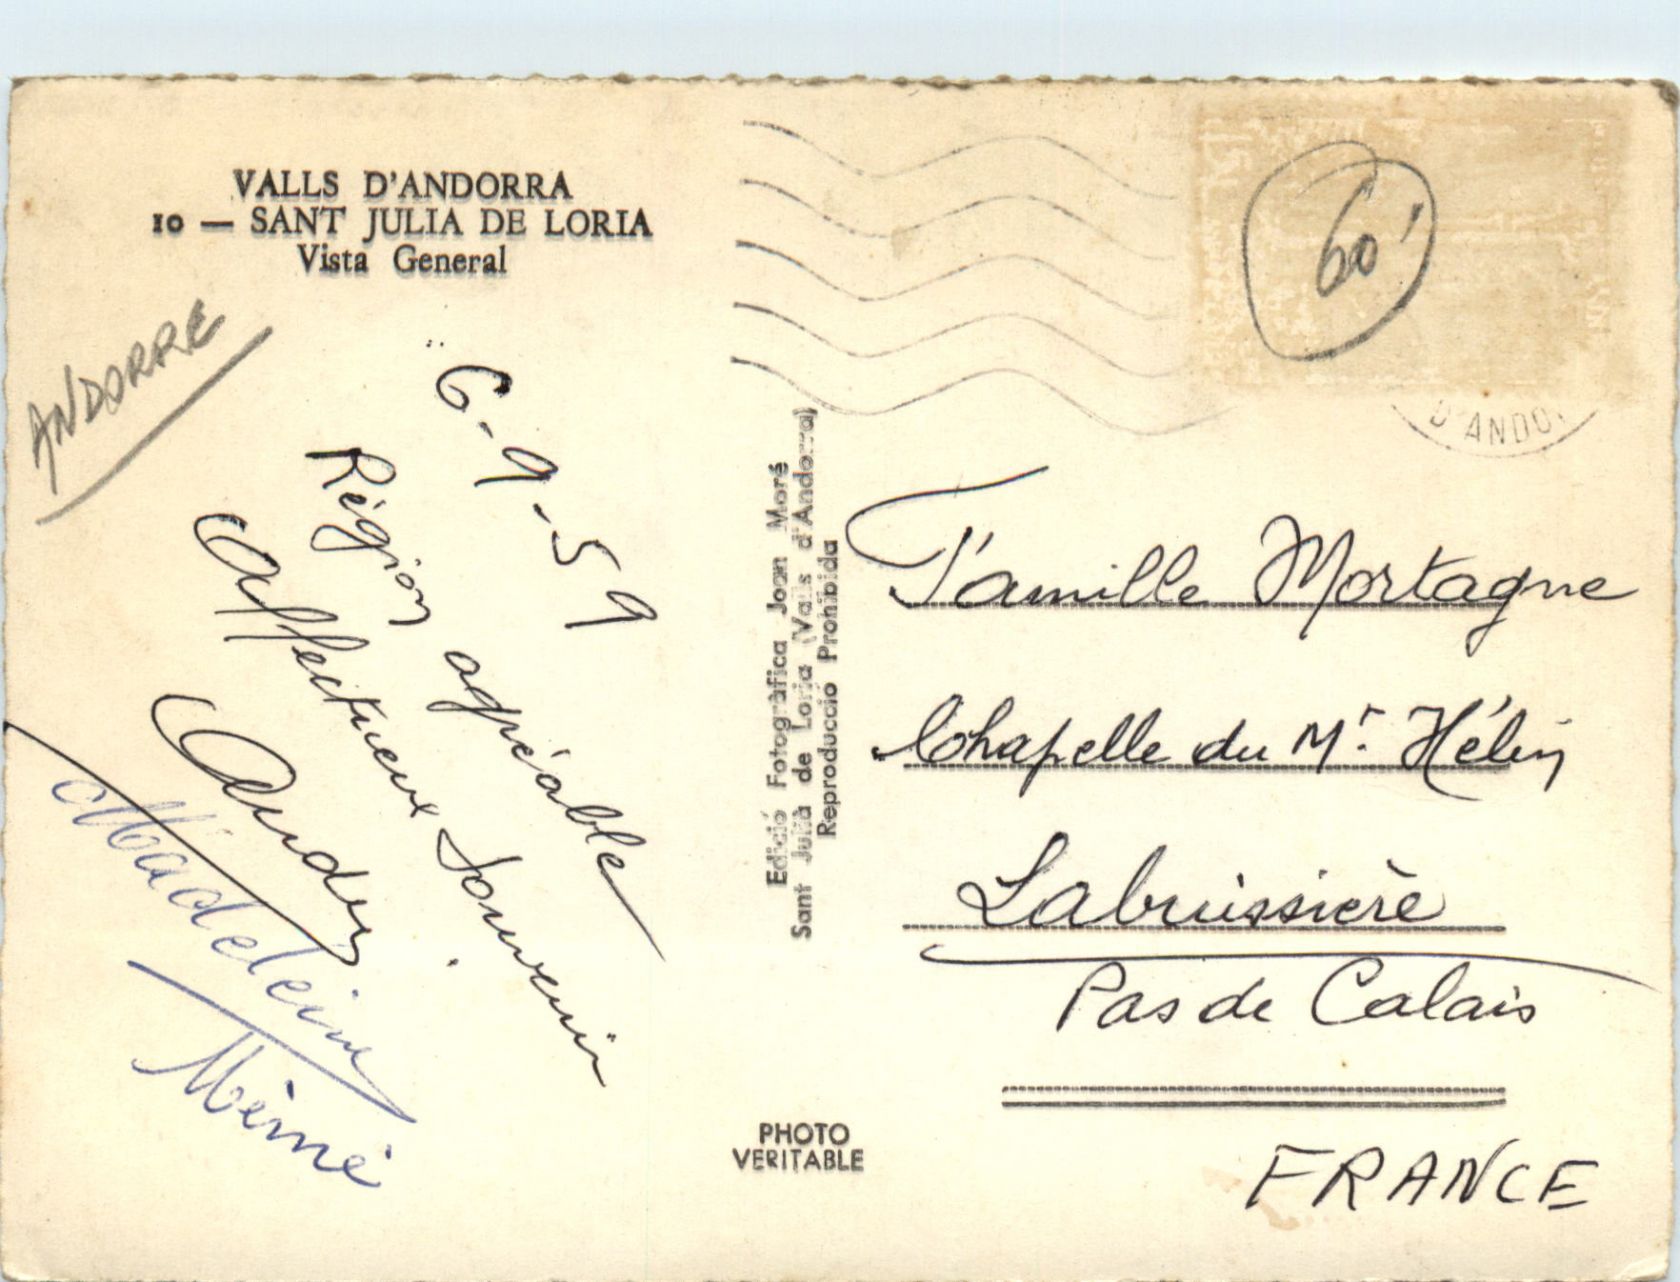 VALLS D'ANDORRA
10 — SANT JULIA DE LORIA
Vista General
ANDORRE
6-9-59
Région agréable
Affectueux Souvenir
Madeleine
Mémé
Edició Fotogràfica Joan Moré
Sant Julià de Loria (Valls d'Andorra)
Reproducció Prohibida
PHOTO
VERITABLE
60'
D'ANDO
Famille Mortagne
Chapelle du Mt. Hélin
Labuissière
Pas de Calais
FRANCE